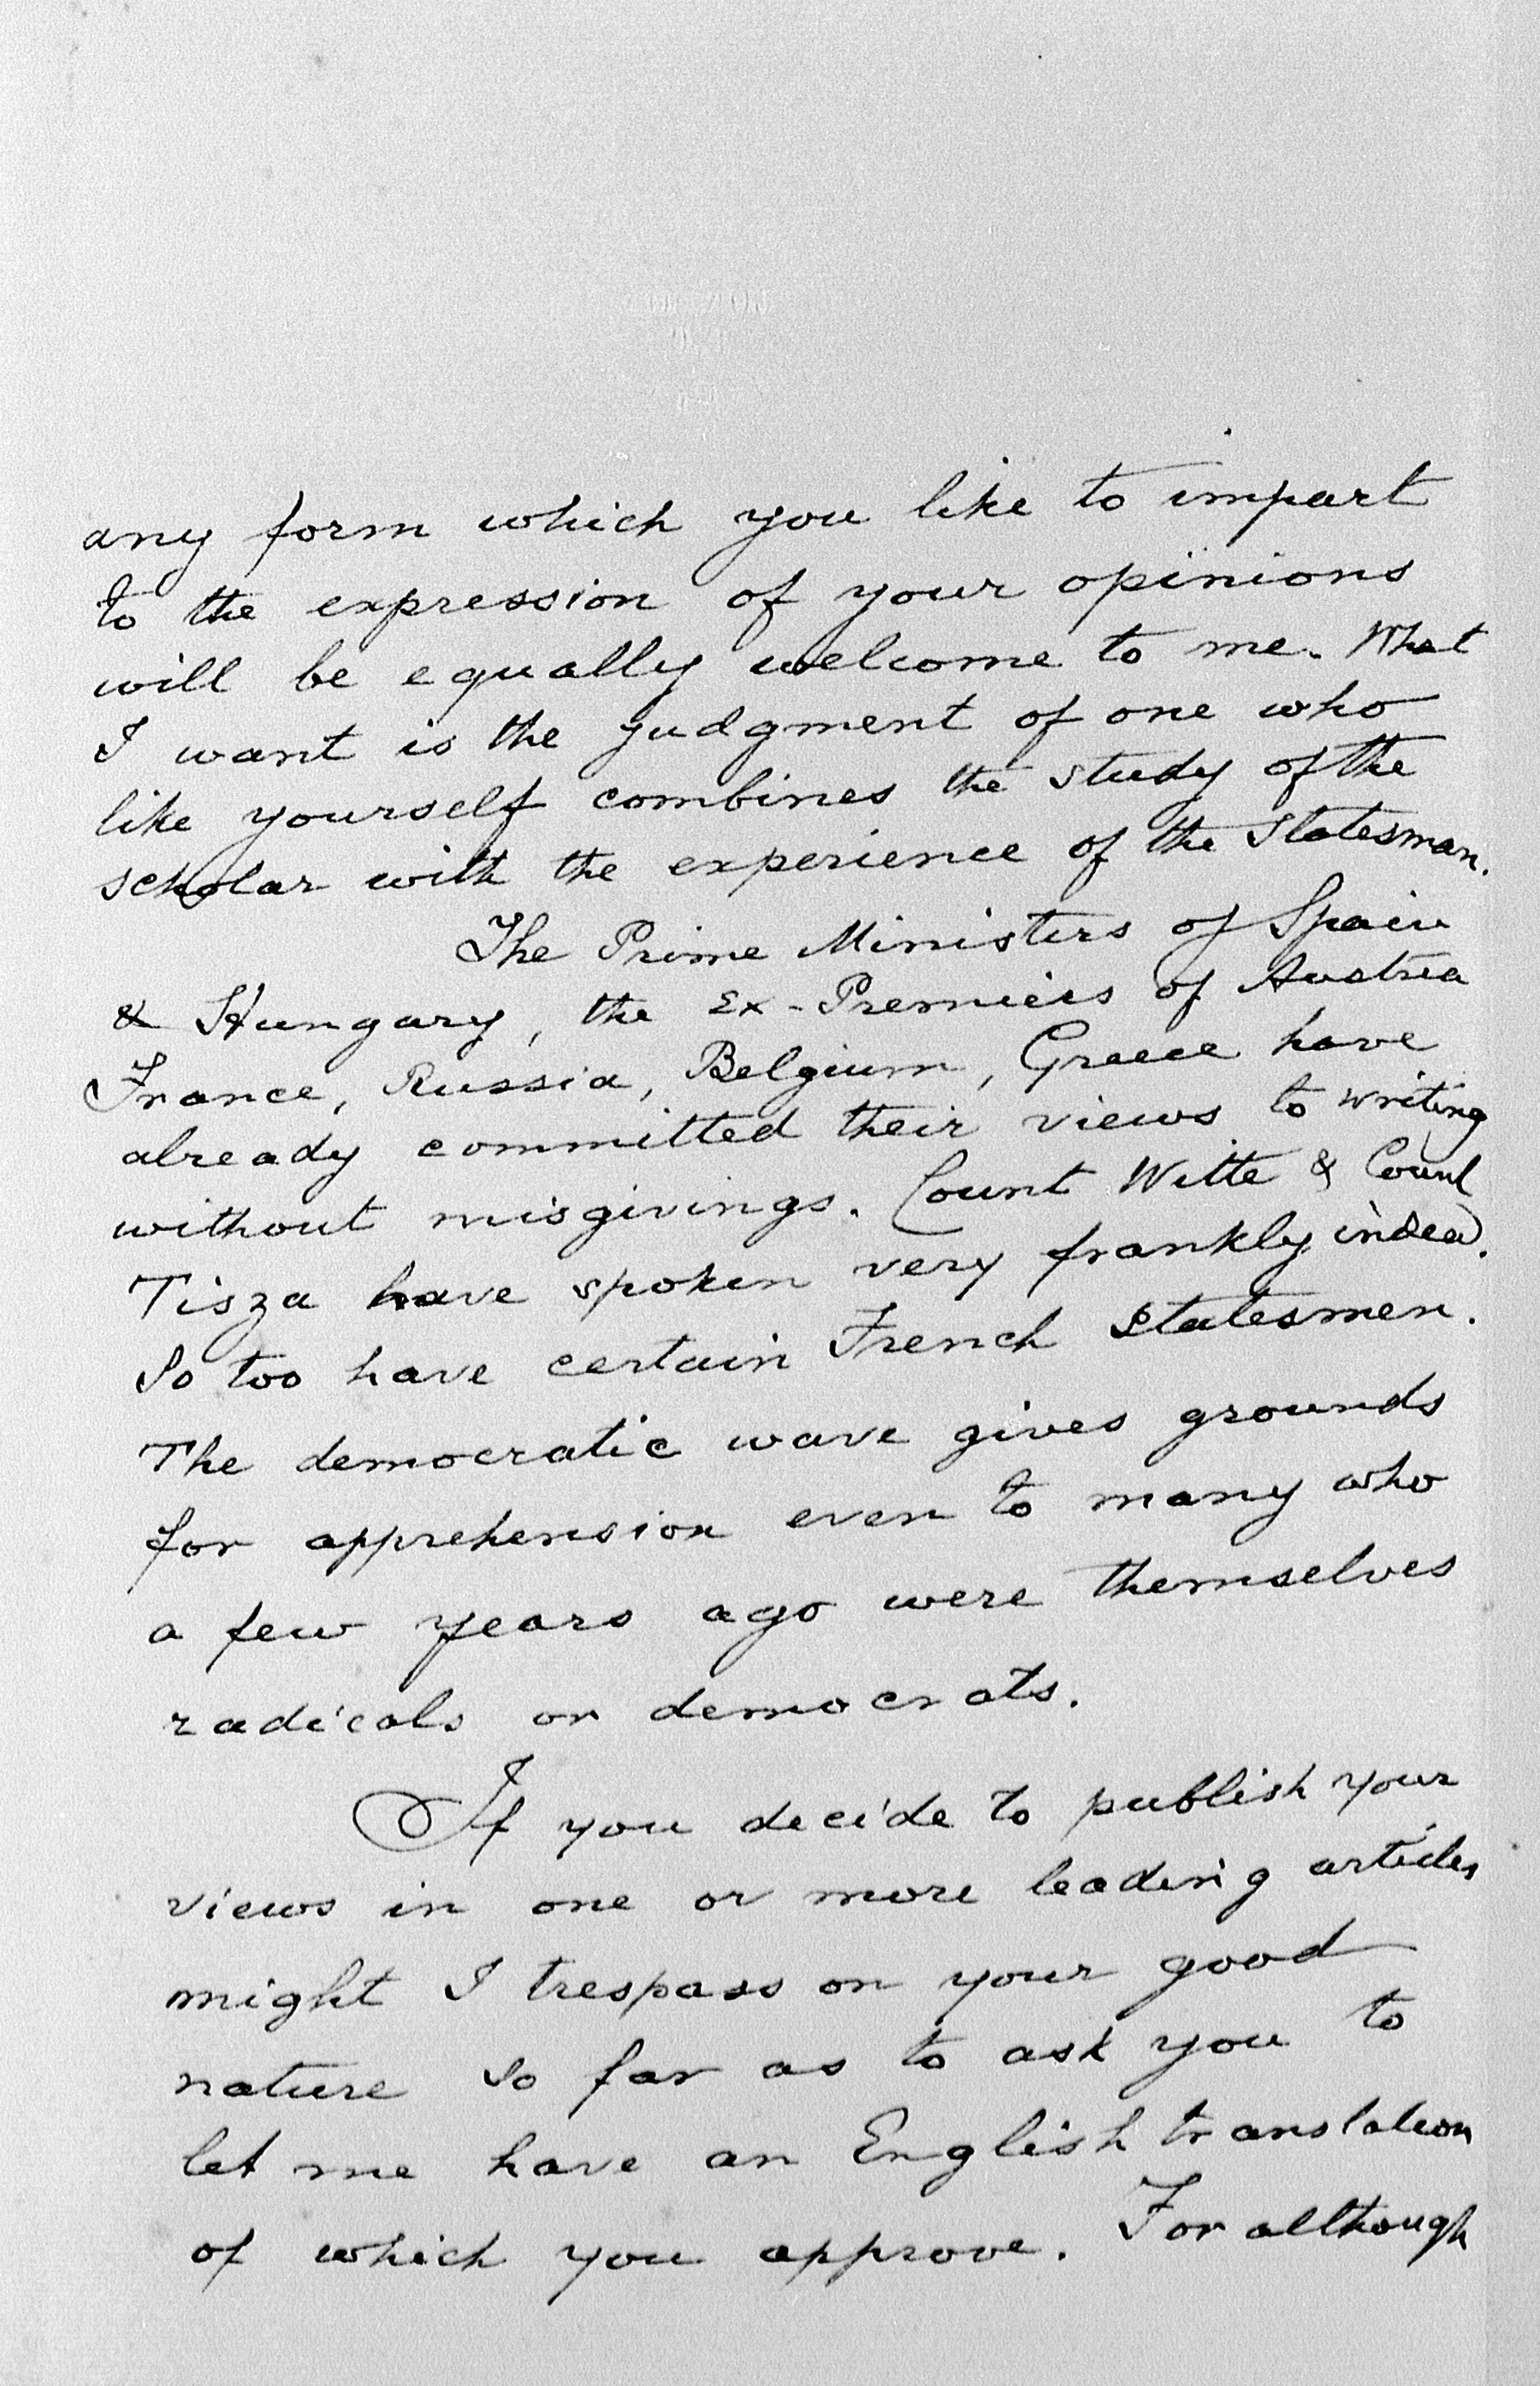 any form which you like to impart
to the expression of your opinions
will be equally welcome to me. What
I want is the judgment of one who
like yourself combines the study of the
scholar with the experience of the Statesman.
The Prime Ministers of Spain
& Hungary, the Ex-Premiers of Austria
France, Russia, Belgium, Greece have
already committed their views to writing
without misgivings. Count Witte & Count
Tisza have spoken very frankly indeed.
So too have certain French Statesmen.
The democratic wave gives grounds
for apprehension even to many who
a few years ago were themselves
radicals or democrats.
If you decide to publish your
views in one or more leading articles
might I trespass on your good
nature so far as to ask you to
let me have an English translation
of which you approve. For although